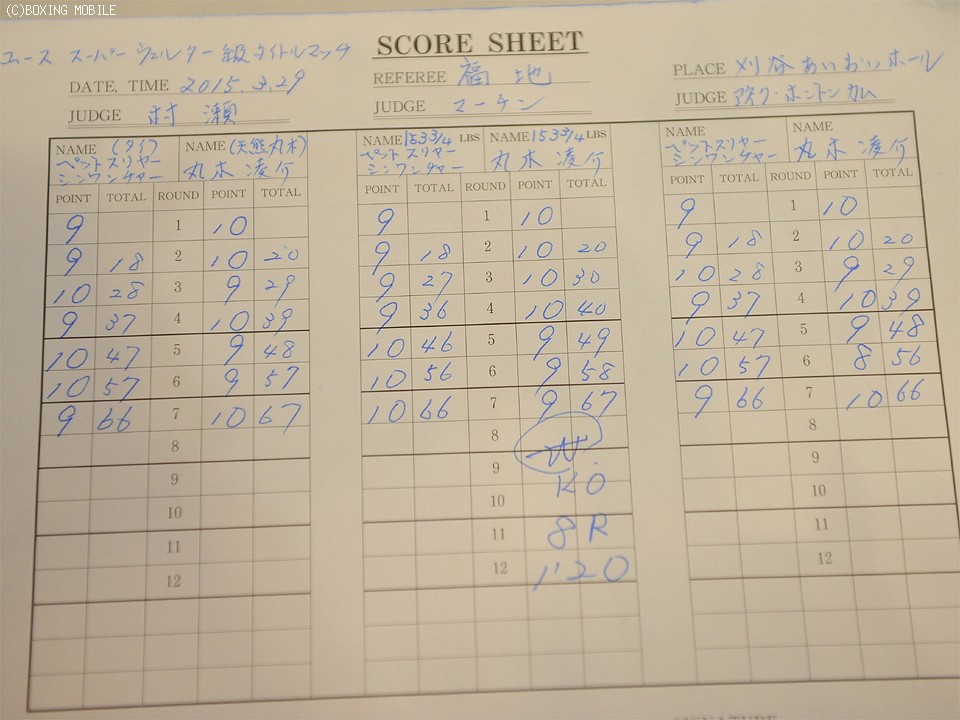 (C)BOXING MOBILE
ユース スーパーウェルター級タイトルマッチ
SCORE SHEET
DATE, TIME 2015.3.29
REFEREE 福地
PLACE 刈谷あいおいホール
JUDGE 村瀬
JUDGE マーチン
JUDGE
NAME (タイ) NAME (天熊丸木)
ペットスリヤー
シンワンチャー 丸木凌介
POINT TOTAL ROUND POINT TOTAL
9 1 10
9 18 2 10 20
10 28 3 9 29
9 37 4 10 39
10 47 5 9 48
10 57 6 9 57
9 66 7 10 67
8
9
10
11
12
NAME 153 3/4 LBS NAME 153 3/4 LBS
ペットスリヤー
シンワンチャー 丸木凌介
POINT TOTAL ROUND POINT TOTAL
9 1 10
9 18 2 10 20
9 27 3 10 30
9 36 4 10 40
10 46 5 9 49
10 56 6 9 58
10 66 7 9 67
8 W
9 KO
10
11 8R
12 1'20
NAME NAME
ペットスリヤー
シンワンチャー 丸木凌介
POINT TOTAL ROUND POINT TOTAL
9 1 10
9 18 2 10 20
10 28 3 9 29
9 37 4 10 39
10 47 5 9 48
10 57 6 8 56
9 66 7 10 66
8
9
10
11
12